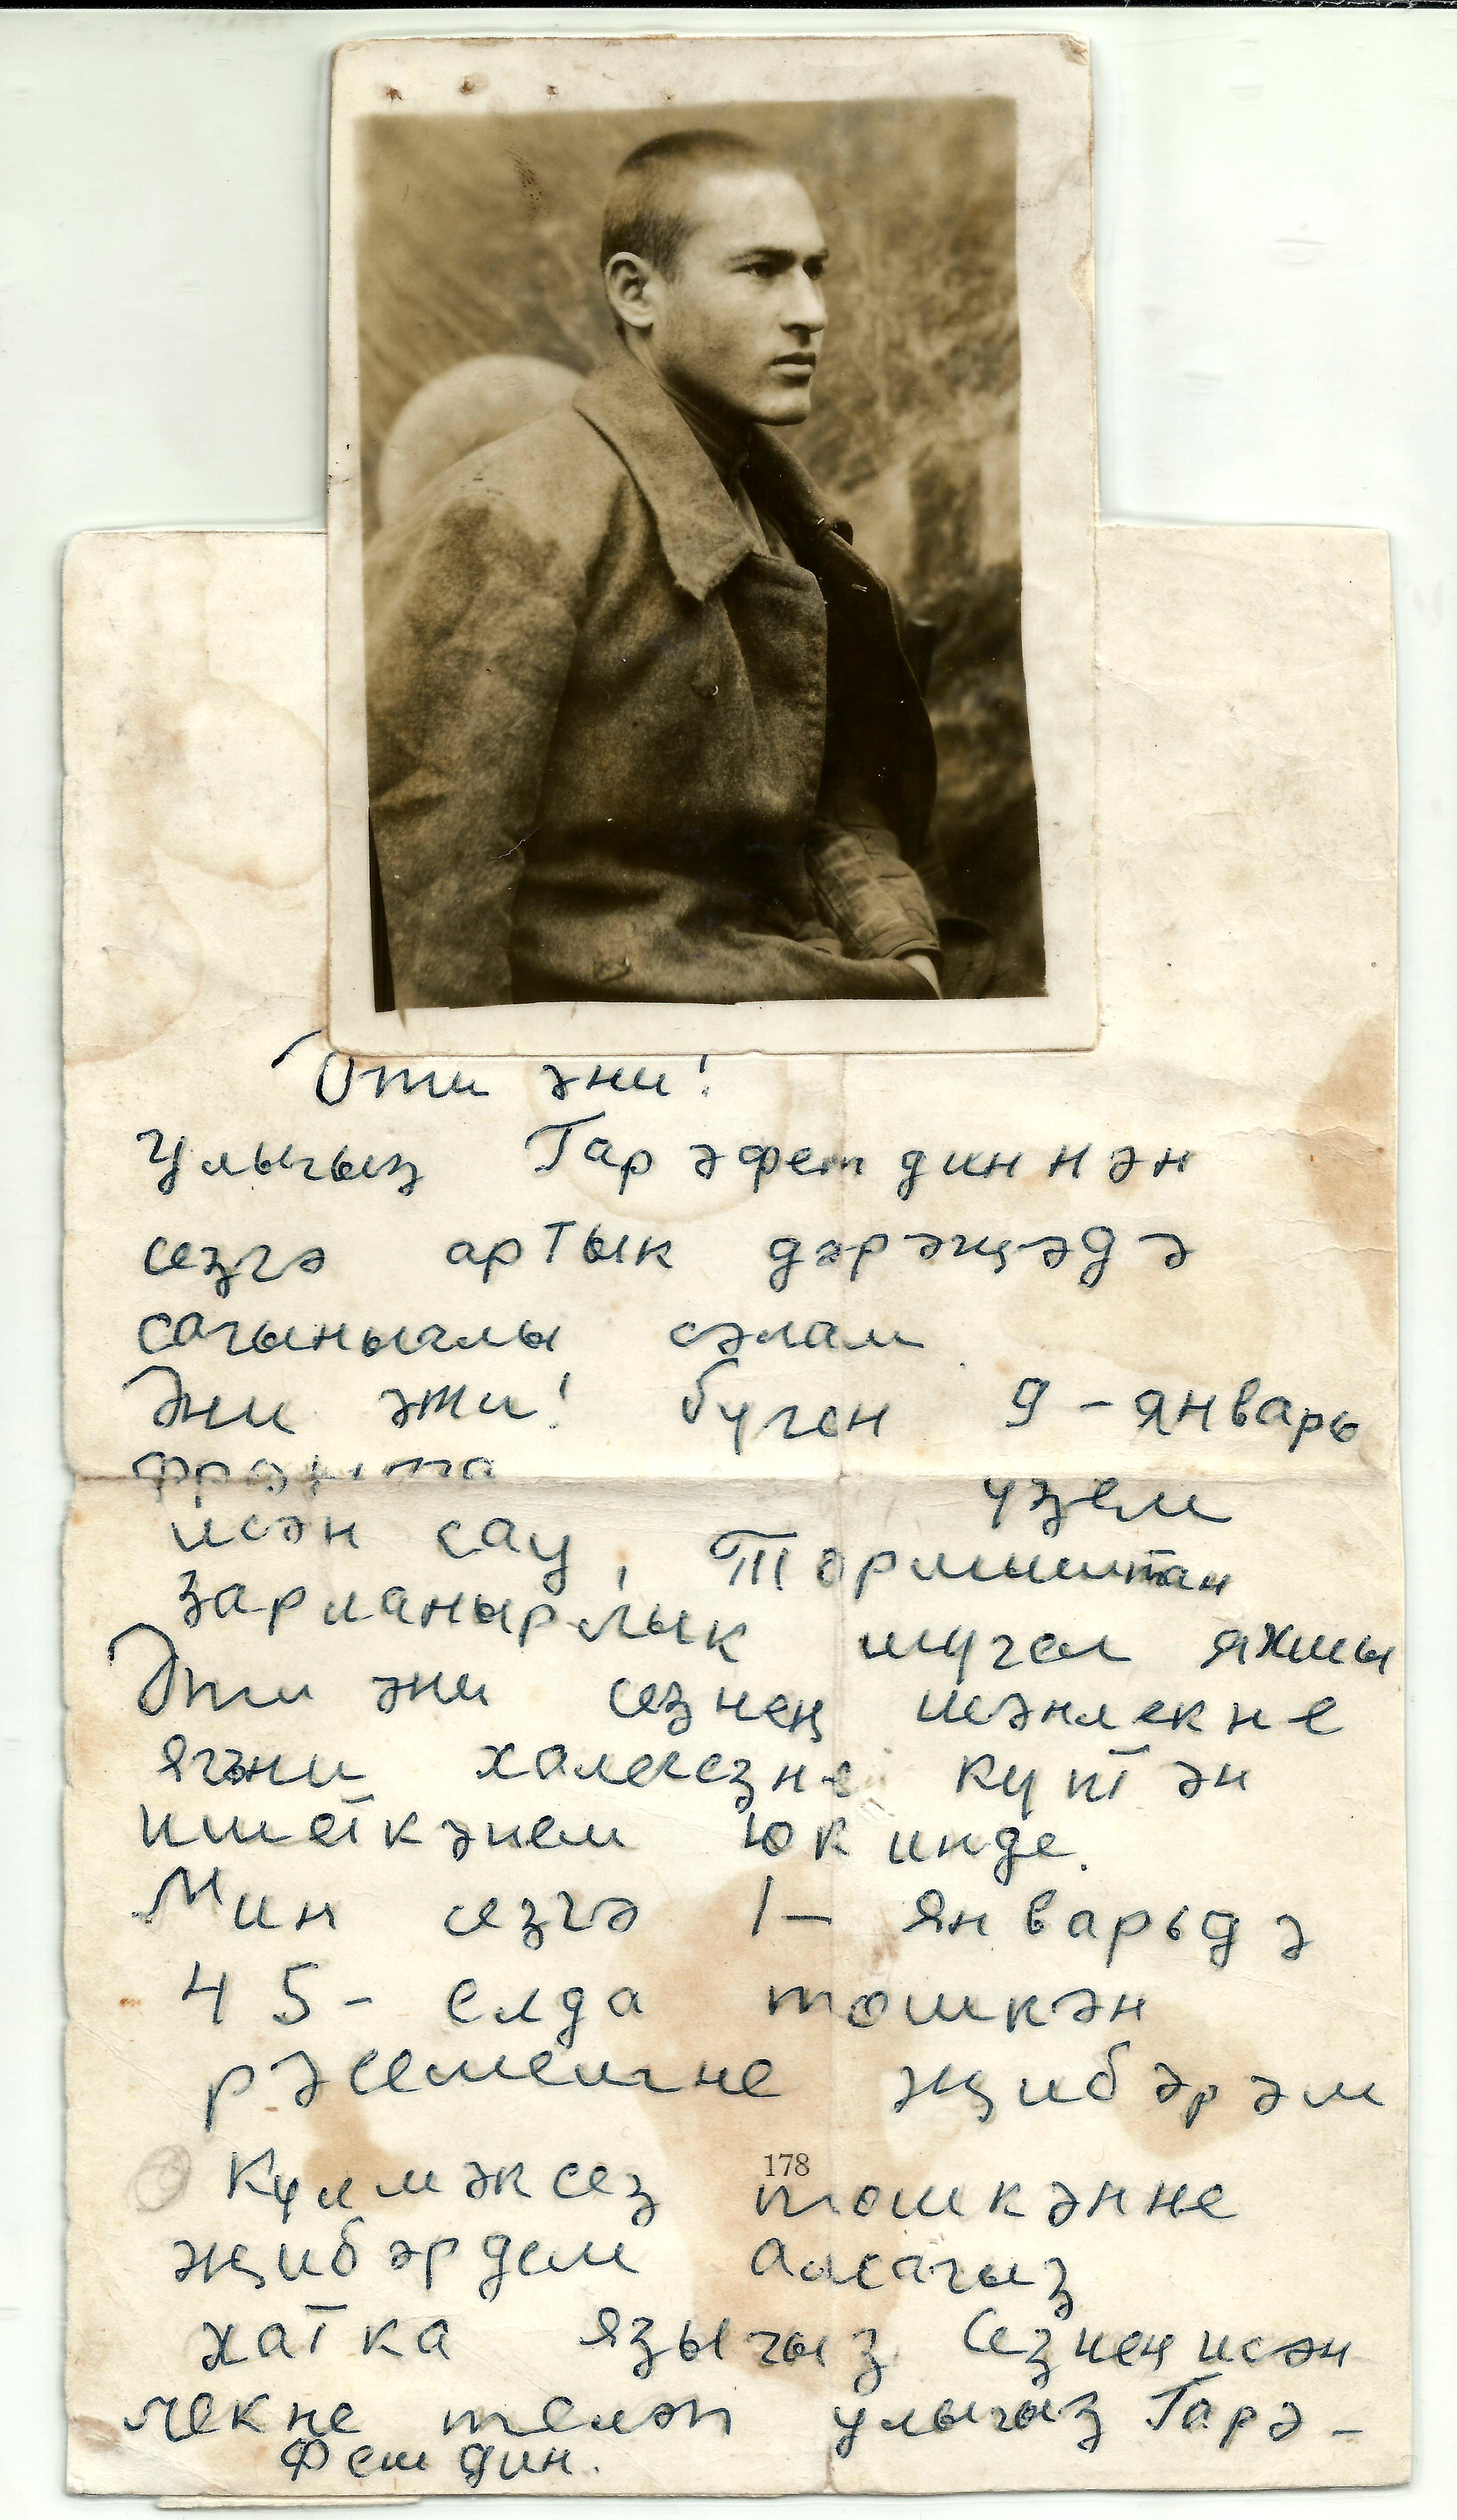 Әти әни!
Улыгыз Гарәфетдиннән
сезгә артык дәрәҗәдә
сагынычлы сәлам
Әни әти! бүген 9-январь
үзем
исән сау, Тормыштан
зарланырлык түгел яхшы
Әти әни сезнең исәнлекне
ягъни халегезне күптән
ишеткәнем юк инде.
Мин сезгә 1-январьдә
45-елда төшкән
рәсемемне җибәрәм
178
Күлмәксез төшкәнне
җибәрдем алсагыз
хатка языгыз Сезнең исән
лекне теләп улыгыз Гарә-
фетдин.